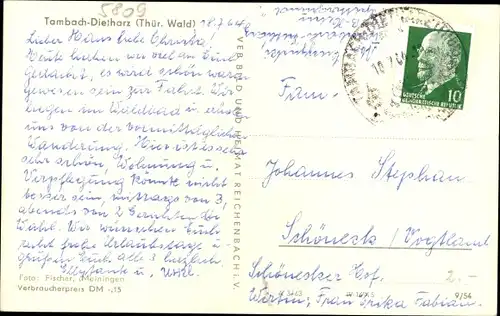 5809
Tambach-Dietharz (Thür. Wald)
18.7.64
Lieber Hans, liebe Christa!
Heute haben wir viel an Euch
gedacht, es wird schön warm
gewesen sein zur Fahrt. Wir
liegen im Waldbad u. erholen
uns von der vormittäglichen
Wanderung. Hier ist es sehr
sehr schön, Wohnung u.
Verpflegung könnte nicht
besser sein, mittags von 3,
abends von 2 Gerichten die
Wahl. Wir wünschen Euch
recht frohe Urlaubstage u.
grüßen Euch alle 3 herzlich
u.
Foto: Fischer, Meiningen
Verbraucherpreis DM -,15
VERLAG BILD UND HEIMAT REICHENBACH I. V.
DEUTSCHE
DEMOKRATISCHE REPUBLIK
10
Fam.
Johannes Stephan
Schöneck / Vogtland
Schönecker Hof.
Wirtin, Frau Erika Fabian.
2.-
9/54